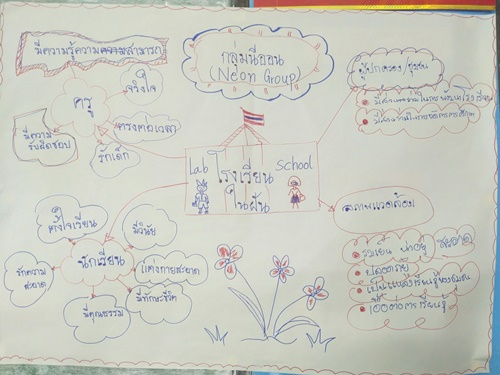 มีความรู้ความสามารถ
กลุ่มนีออน
(Neon Group)
ผู้ปกครอง/ชุมชน
จริงใจ
ครู
ตรงต่อเวลา
มีความ
รับผิดชอบ
รักเด็ก
Lab School
โรงเรียน
ในฝัน
สภาพแวดล้อม
ร่มเย็น น่าอยู่ สะอาด
ปลอดภัย
เป็นแหล่งเรียนรู้ของชุมชน
เอื้อต่อการเรียนรู้
ตั้งใจเรียน
มีวินัย
นักเรียน
รักความ
สะอาด
แต่งกายสะอาด
มีทักษะชีวิต
มีคุณธรรม